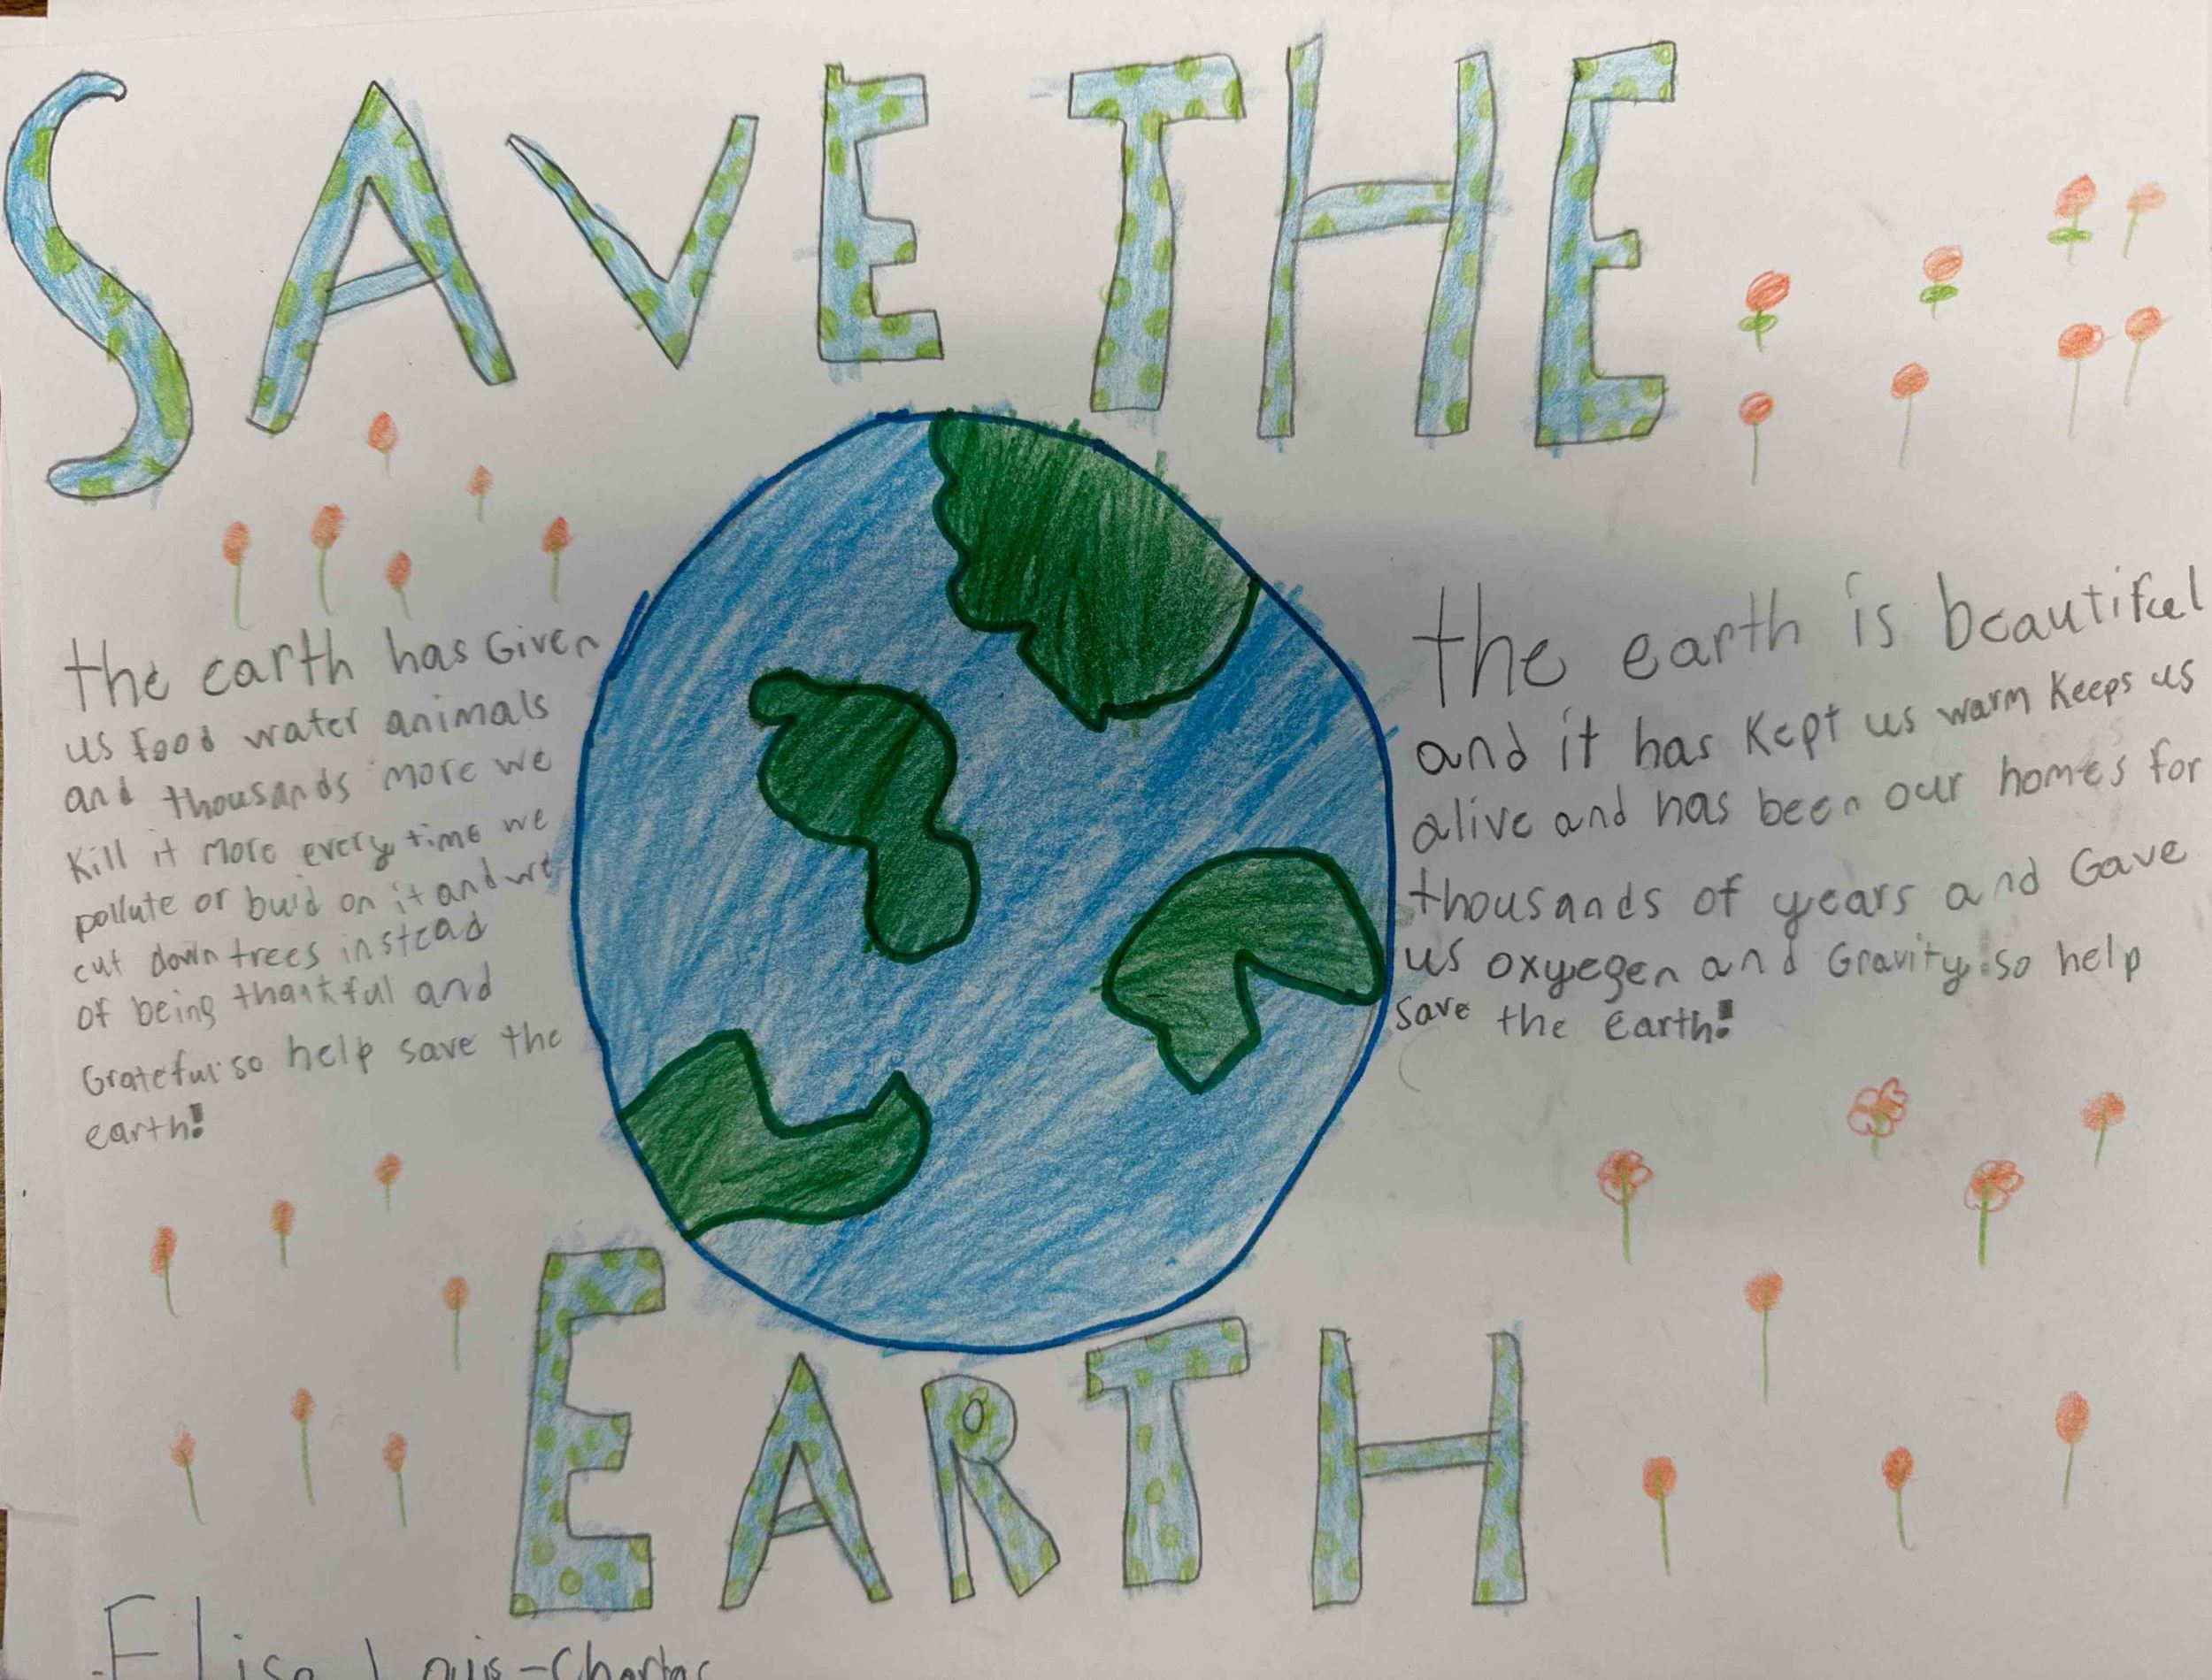 SAVE THE
the earth has Given
us food water animals
and thousands more we
Kill it more every time we
pollute or buid on it and we
cut down trees instead
of being thankful and
Grateful so help save the
earth!
the earth is beautiful
and it has Kept us warm Keeps us
alive and has been our homes for
thousands of years and Gave
us oxyegen and Gravity so help
save the Earth!
EARTH
Elise Louis-